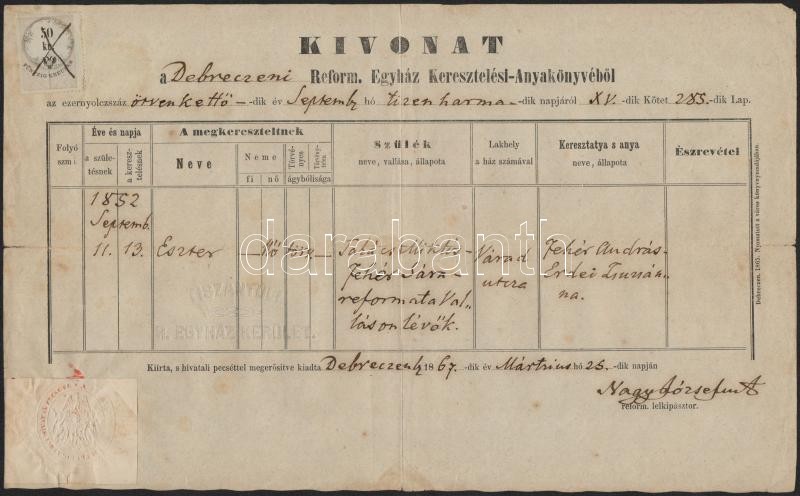 50
kr.
FÜNFZIG KREUZER
KIVONAT
a Debreczeni Reform. Egyház Keresztelési-Anyakönyvéből
az ezernyolczszáz ötvenkettő -dik év Septemb hó tizenharma -dik napjáról XV. -dik Kötet 285. -dik Lap.
Folyó szám
Éve és napja
a születésnek
a keresztelésnek
A megkereszteltnek
Neve
Neme
fi
nő
Törvényes
Törvénytelen
ágybólisága
Szülék
neve, vallása, állapota
Lakhely
a ház számával
Keresztatya s anya
neve, állapota
Észrevétel
1852
Septemb.
11. 13. Eszter nő törv
Miklós
Fehér Sára
reformata Val-
láson lévők.
Várad
utcza
Fehér András
Erdei Zsuzsán-
na.
TISZÁNTÚLI
H. EGYHÁZ KERÜLET.
darabanth.com
Debreczen, 1865. Nyomatott a város könyvnyomdájában.
Kiírta, s hivatali pecséttel megerősítve kiadta Debreczenb 1867. -dik év Mártzius hó 25. -dik napján
Nagy József mk
reform. lelkipásztor.